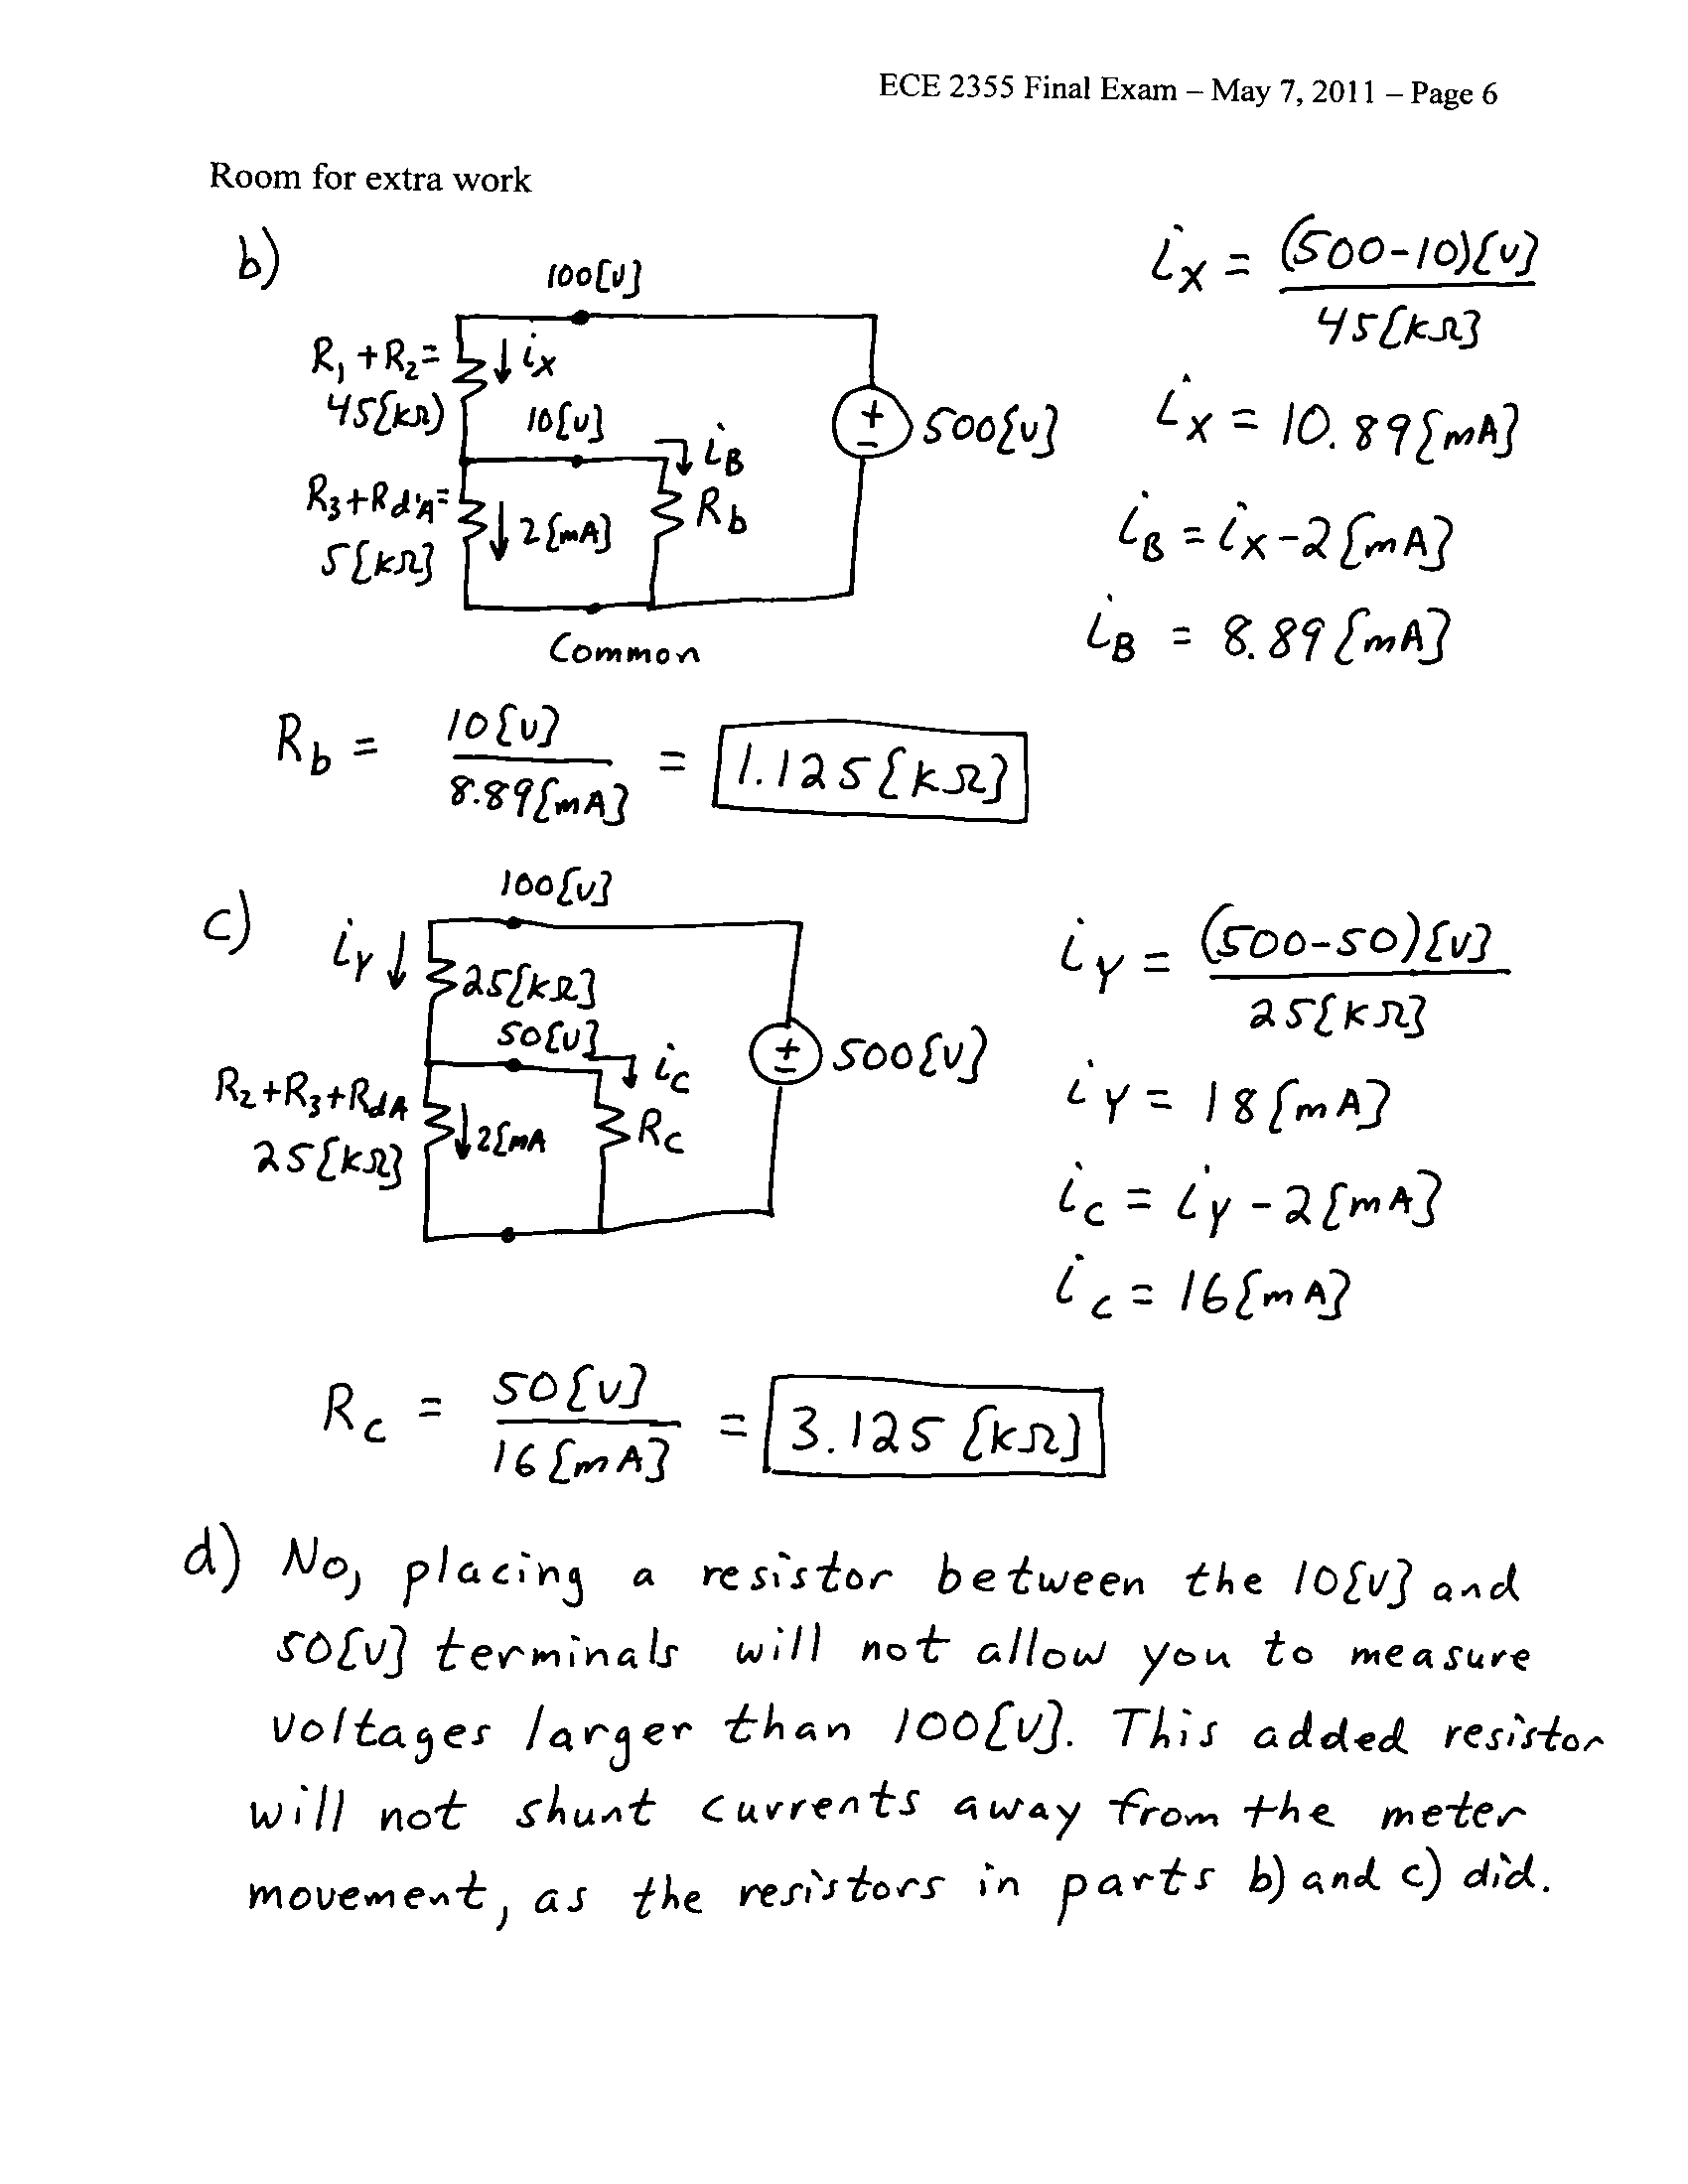 ECE 2355 Final Exam – May 7, 2011 – Page 6
Room for extra work
b)
100[v]
R₁ + R₂ =
45[kΩ]
↓ iX
10[v]
iB
R₃ + Rd'A =
5[kΩ]
↓ 2[mA]
Rb
+
-
500[v]
Common
iX = (500-10)[v] / 45[kΩ]
iX = 10.89[mA]
iB = iX - 2[mA]
iB = 8.89[mA]
Rb = 10[v] / 8.89[mA] = 1.125[kΩ]
c)
100[v]
iY ↓
25[kΩ]
50[v]
iC
R₂ + R₃ + RdA
25[kΩ]
↓ 2[mA
RC
+
-
500[v]
iY = (500-50)[v] / 25[kΩ]
iY = 18[mA]
iC = iY - 2[mA]
iC = 16[mA]
RC = 50[v] / 16[mA] = 3.125[kΩ]
d) No, placing a resistor between the 10[v] and
50[v] terminals will not allow you to measure
voltages larger than 100[v]. This added resistor
will not shunt currents away from the meter
movement, as the resistors in parts b) and c) did.